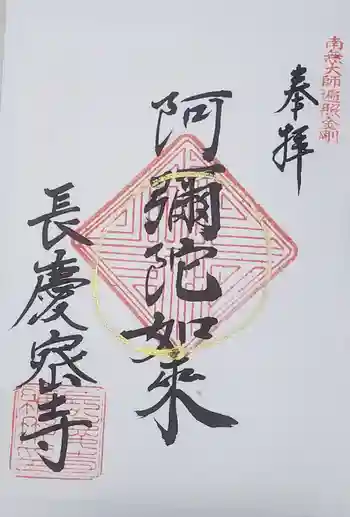 南無大師遍照金剛
奉拝
阿彌陀如来
長慶密寺